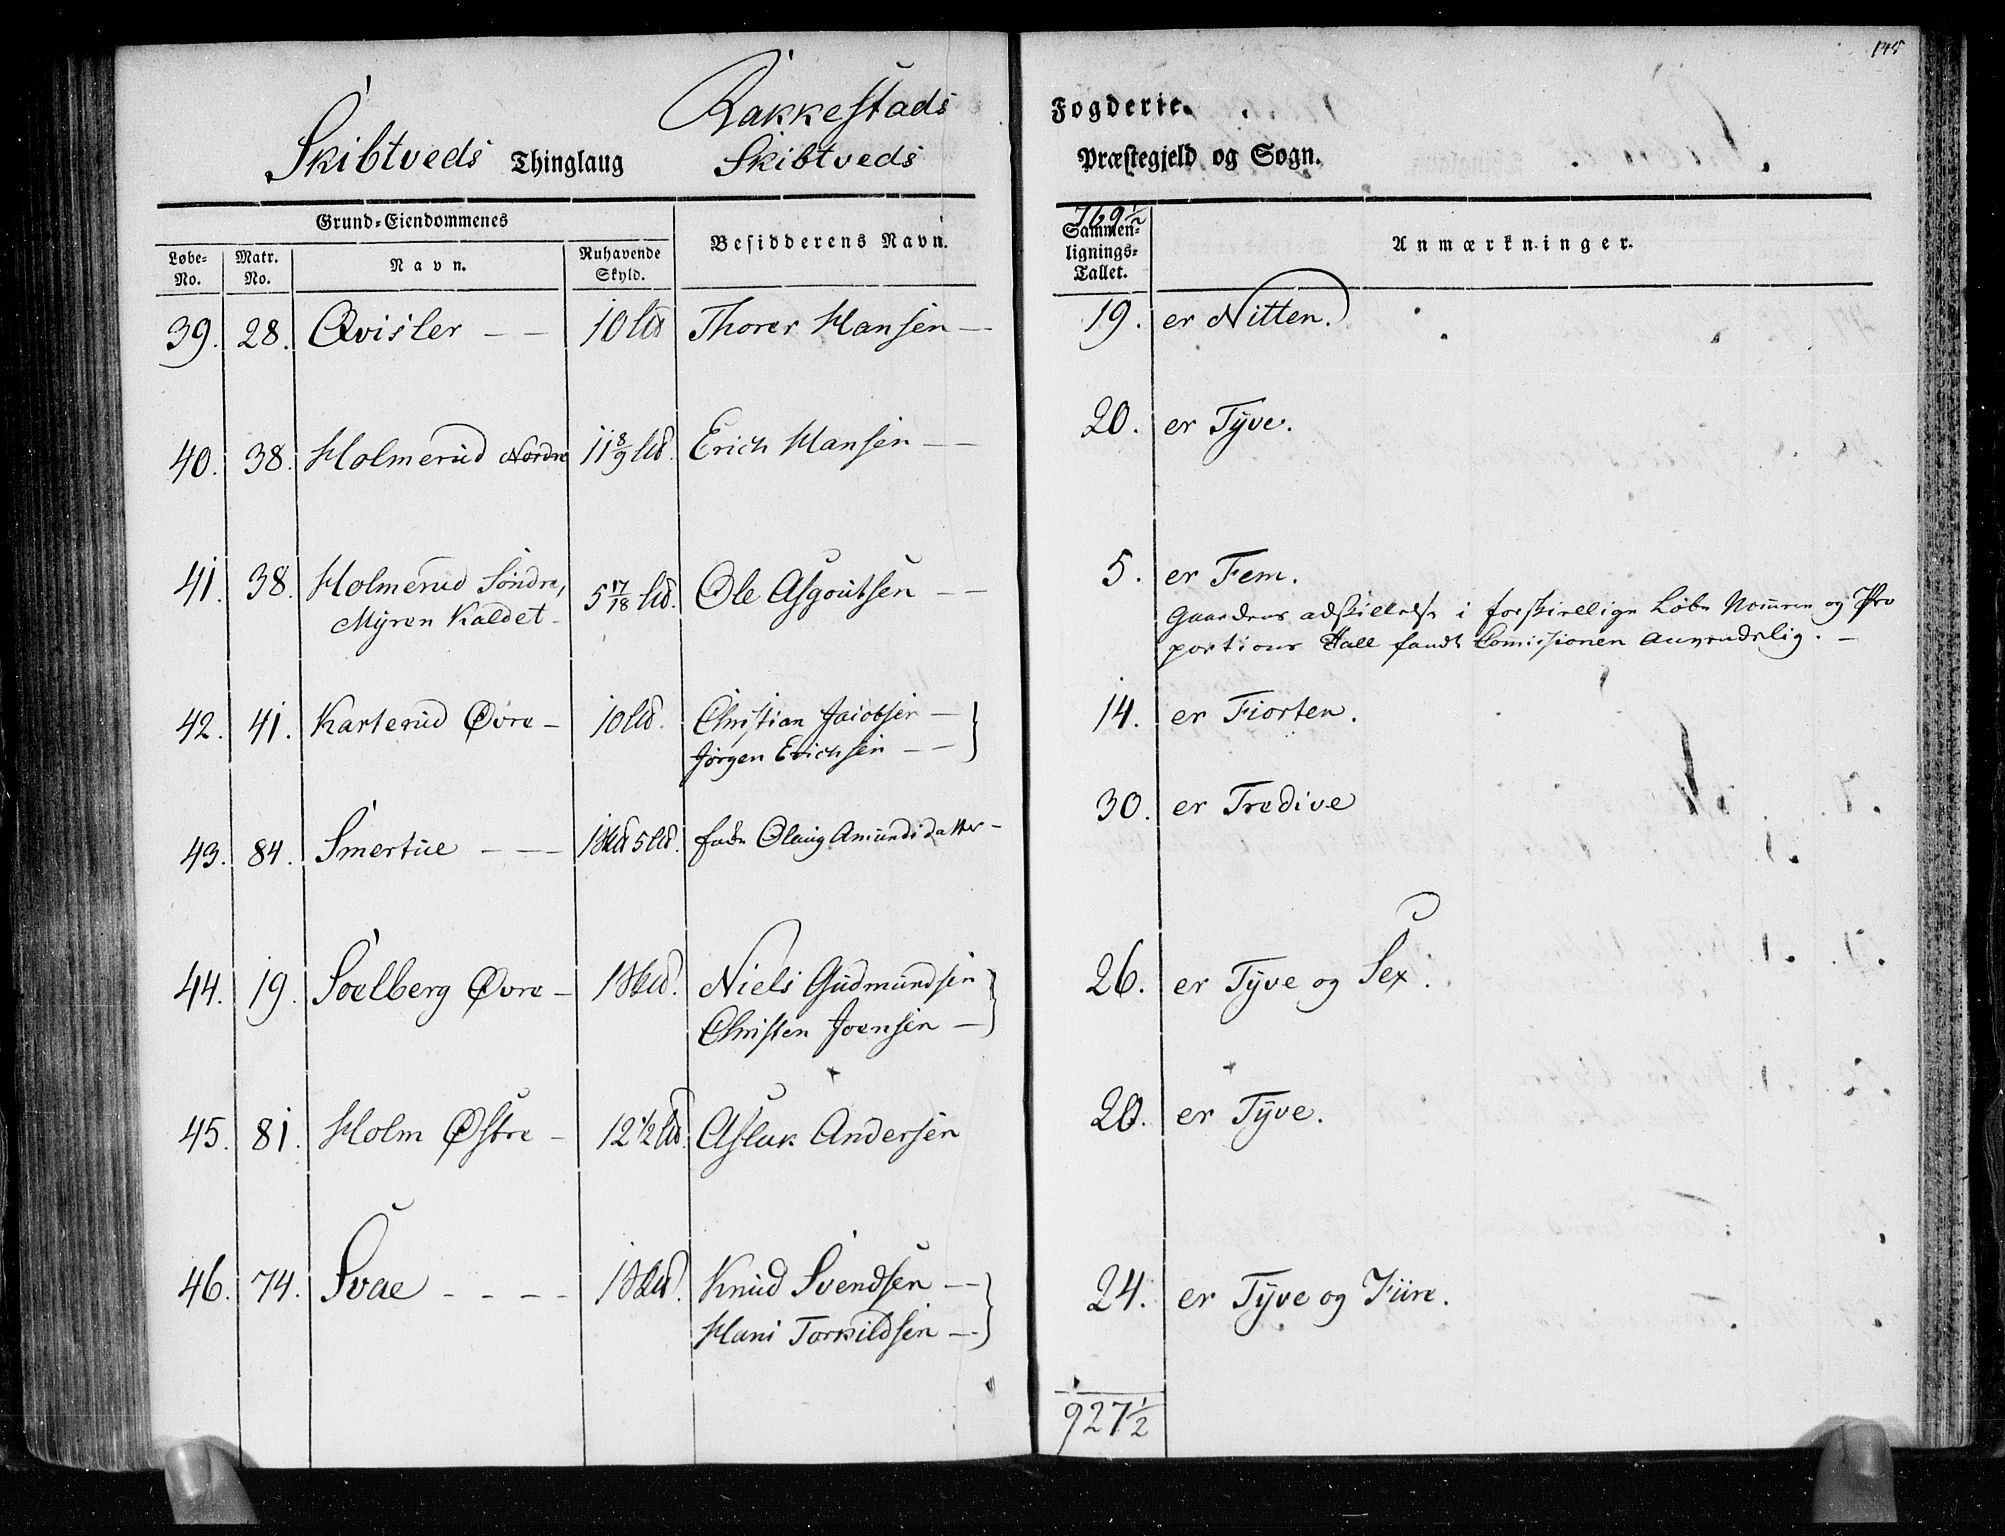 145
Rakkestads Fogderie.
Skibtveds Thinglaug Skibtveds Præstegjeld og Sogn.
Grund-Eiendommenes
Besidderens Navn.
769½
Sammen-
lignings-
Tallet.
Anmærkninger.
Løbe-
No.
Matr.
No.
Navn.
Ruhavende
Skyld.
39. 28. Qvisler — — 10 L℔ Thorer Hansen — 19. er Nitten.
40. 38. Holmerud Nordre 11 8/9 L℔. Erich Hansen — — 20. er Tyve.
41. 38. Holmerud Søndre, 5 17/18 L℔. Ole Asgoutsen — — 5. er Fem.
Myren Kaldet —
Gaardens adskillelse i forskiellige Løbe Nomere og Pro
portions Tall fandt Comissionen Anvendelig. —
42. 41. Karterud Øvre — 10 L℔. Christian Jacobsen — 14. er Fiorten.
Jørgen Erichsen — —
43. 84. Smertue — — 1 Sk℔ 5 L℔. Olaug Amundsdatter — 30. er Tredive
44. 19. Soelberg Øvre — 1 Sk℔. Niels Gudmundsen 26. er Tyve og Sex.
Christen Joensen —
45. 81. Holm Østre — 12 1/2 L℔. Aslak Andersen 20. er Tyve.
46. 74. Svae - - - - 1 Sk℔. Knud Svendsen — 24. er Tyve og Fiire.
Hans Torkildsen —
927½